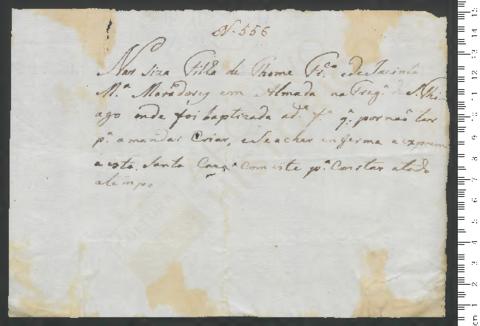 N. 556
Narsiza Filha de Thome Fr.ª e de Jacinta
M.ª Moradores em Almada na Freg.ª de S. Thi
ago onde foi baptizada q. por não ter
p.ª a mandar Criar, e se achar enferma a expoem
a esta Santa Caza Com este p.ª Constar a todo
a tempo